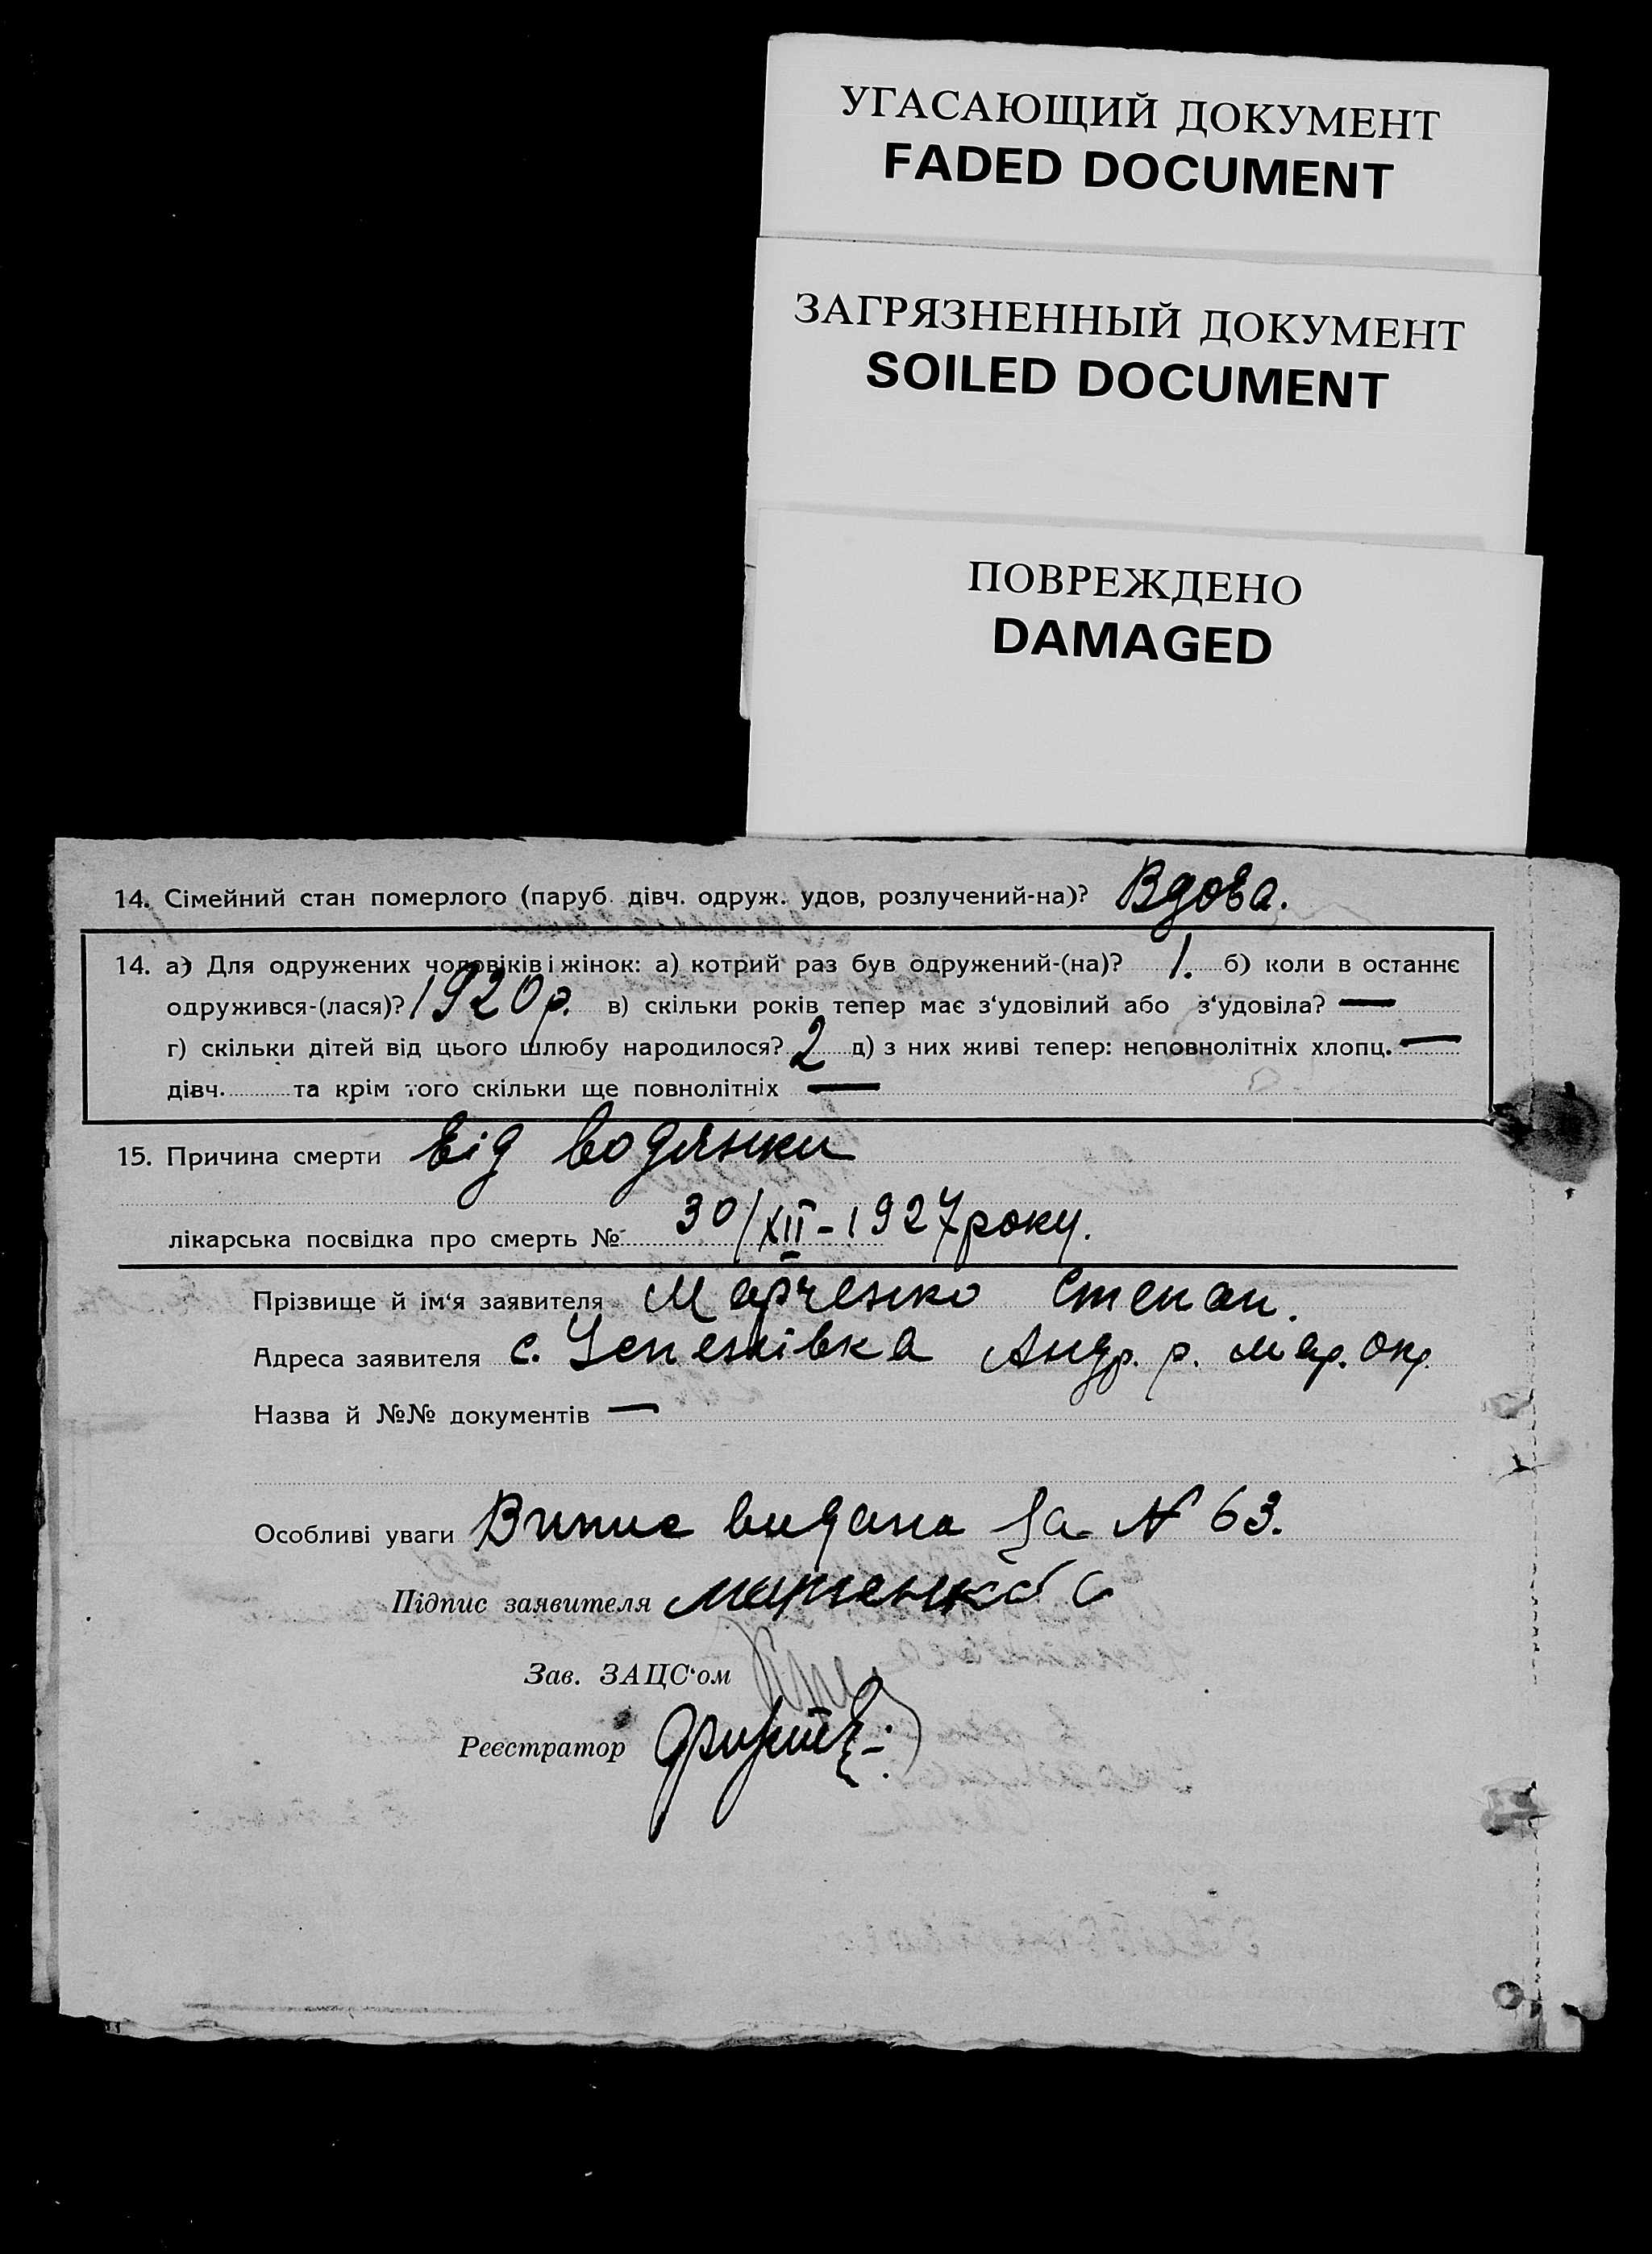 УГАСАЮЩИЙ ДОКУМЕНТ
FADED DOCUMENT
ЗАГРЯЗНЕННЫЙ ДОКУМЕНТ
SOILED DOCUMENT
ПОВРЕЖДЕНО
DAMAGED
14. Сімейний стан померлого (паруб. дівч. одруж. удов, розлучений-на)? Вдова.
14. а) Для одружених чоловіків і жінок: а) котрий раз був одружений-(на)? 1. б) коли в останнє
одружився-(лася)? 1920 р. в) скільки років тепер має з‘удовілий або з‘удовіла? —
г) скільки дітей від цього шлюбу народилося? 2 д) з них живі тепер: неповнолітніх хлопц. —
дівч. та крім того скільки ще повнолітніх —
15. Причина смерти від водянки
лікарська посвідка про смерть № 30/XII-1927 року.
Прізвище й ім‘я заявителя Марченко Степан.
Адреса заявителя с. Андр. р. мар. окр.
Назва й №№ документів —
Особливі уваги Випис видана за № 63.
Підпис заявителя Марченко С
Зав. ЗАЦС‘ом
Реєстратор